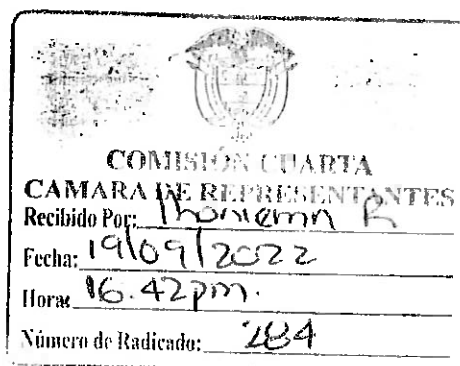 COMISIÓN CUARTA
CAMARA DE REPRESENTANTES
Recibido Por: R
Fecha: 19/09/2022
Hora: 16:42pm.
Número de Radicado: 284